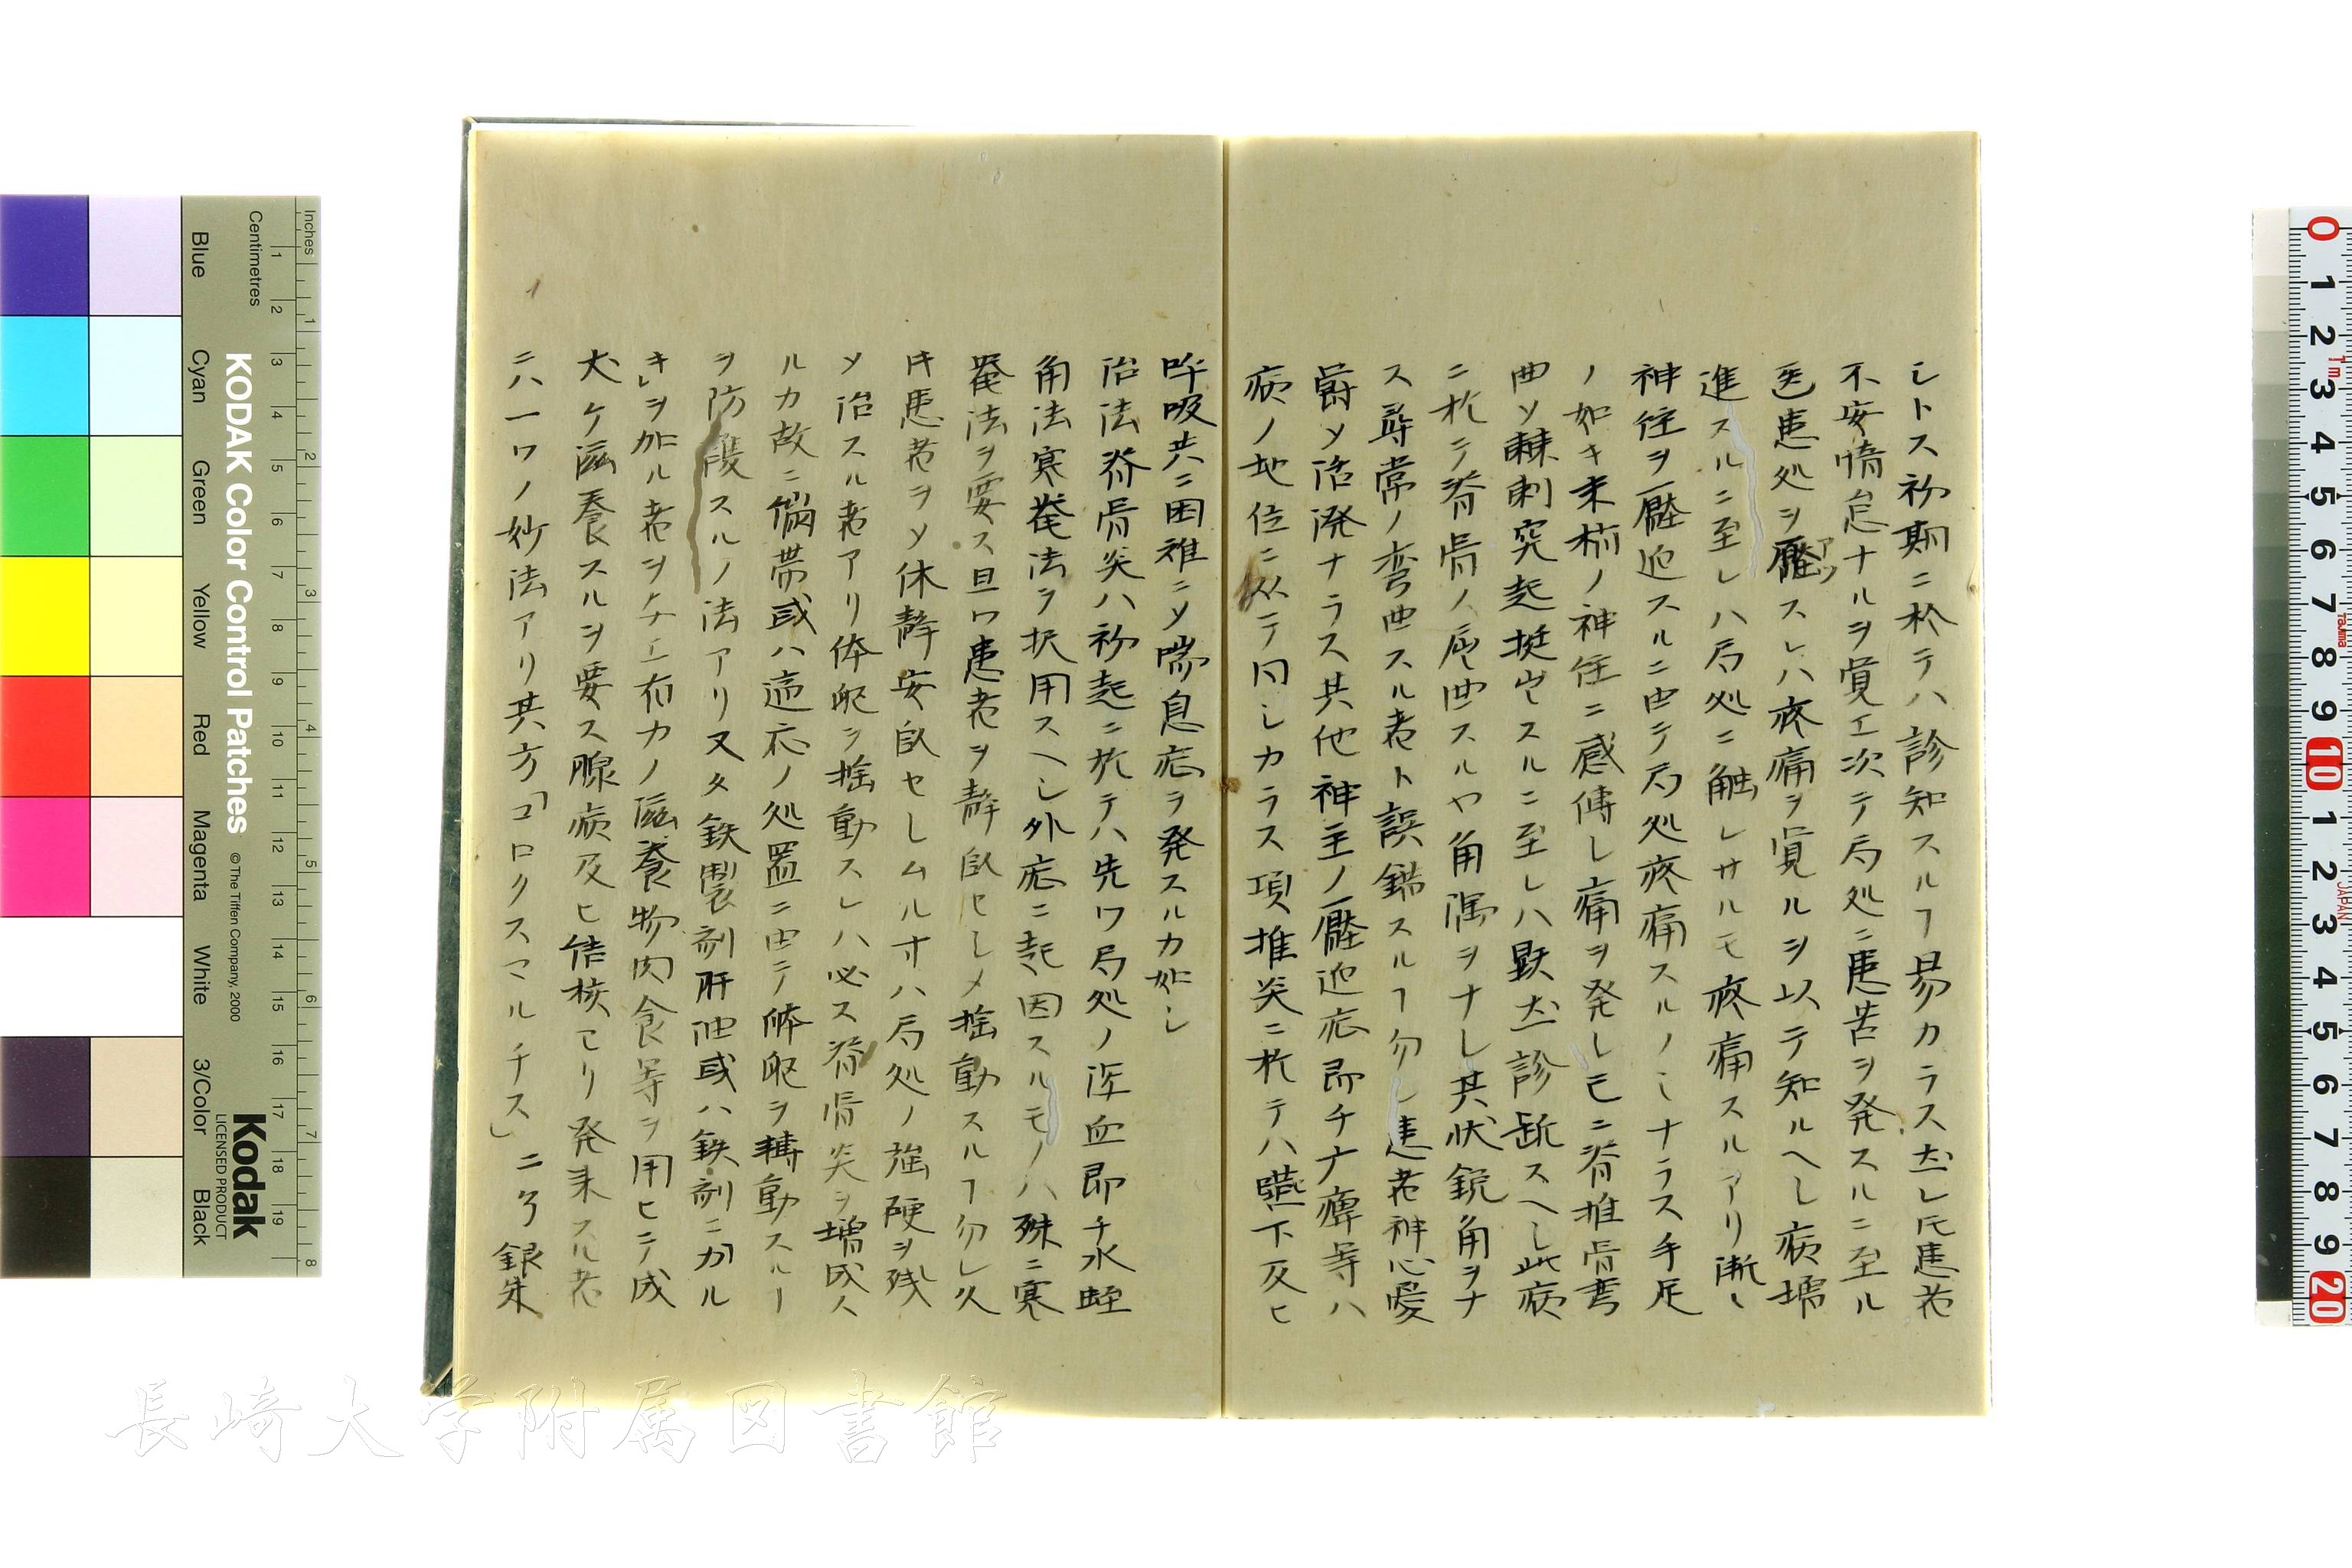 シトス初期ニ於テハ診知スルヿ易カラス𪜈レ𪜈患者
不安惰怠ナルヲ覚エ次テ局処ニ患苦ヲ発スルニ至ル
医患処ヲ壓スレハ疼痛ヲ覚ルヲ以テ知ルヘし病増
アツ
進スルニ至レハ局処ニ触レサルモ疼痛スルアリ漸
神径ヲ壓迫スルニ由テ局処疼痛スルノミナラス手足
ノ如キ末梢ノ神径ニ感傳し痛ヲ発し已ニ脊椎骨
曲ソ棘刺突起挺出スルニ至レハ診スヘし此病
ニ於テ脊骨ノ屈曲スルヤ角隅ヲナし其状鋭角ヲナ
ス尋常ノ弯曲スル者ト誤錯スルヿ勿レ患者神心憂
欝ソ活溌ナラス其他神圣ノ壓迫症即チ痺等ハ
病ノ地位ニ从テ同シカラス項椎炎ニ於テハ嚥下及ヒ
呼吸共ニ困難ニソ喘息症ヲ発スルカ如シ
治法脊骨炎ハ初起ニ於テハ先ツ局処ノ瀉血即チ水蛭
角法寒罨法ヲ択用スヘし外症ニ起因スルモノハ殊ニ寒
罨法ヲ要ス且ツ患者ヲ静臥セしメ揺動スルヿ勿し久
キ患者ヲソ休静安臥セしムル寸ハ局処ノ強硬ヲ残
ソ治スル者アリ体躯ヲ揺動スレハ必ス脊骨炎ヲ増成ス
ルカ故ニ繃帯或ハ適応ノ処置ニ由テ体躯ヲ轉動スルヿ
ヲ防護スルノ法アリ又タ鉄製 或ハ鉄 ニカル
キレヲ加ル者ヲ 有力ノ滋養物肉食等ヲ用ヒテ成
犬ケ滋養スルヲ要ス腺病及ヒ結核ヨリ発来スル者
ニハ一ツノ妙法アリ其方「コロクスマルチス」二ヲ銀朱
長崎大学附属図書館
KODAK Color Control Patches
© The Tiffen Company, 2000
Kodak
LICENSED PRODUCT
Inches
Centimetres
Blue
Cyan
Green
Yellow
Red
Magenta
White
3/Color
Black